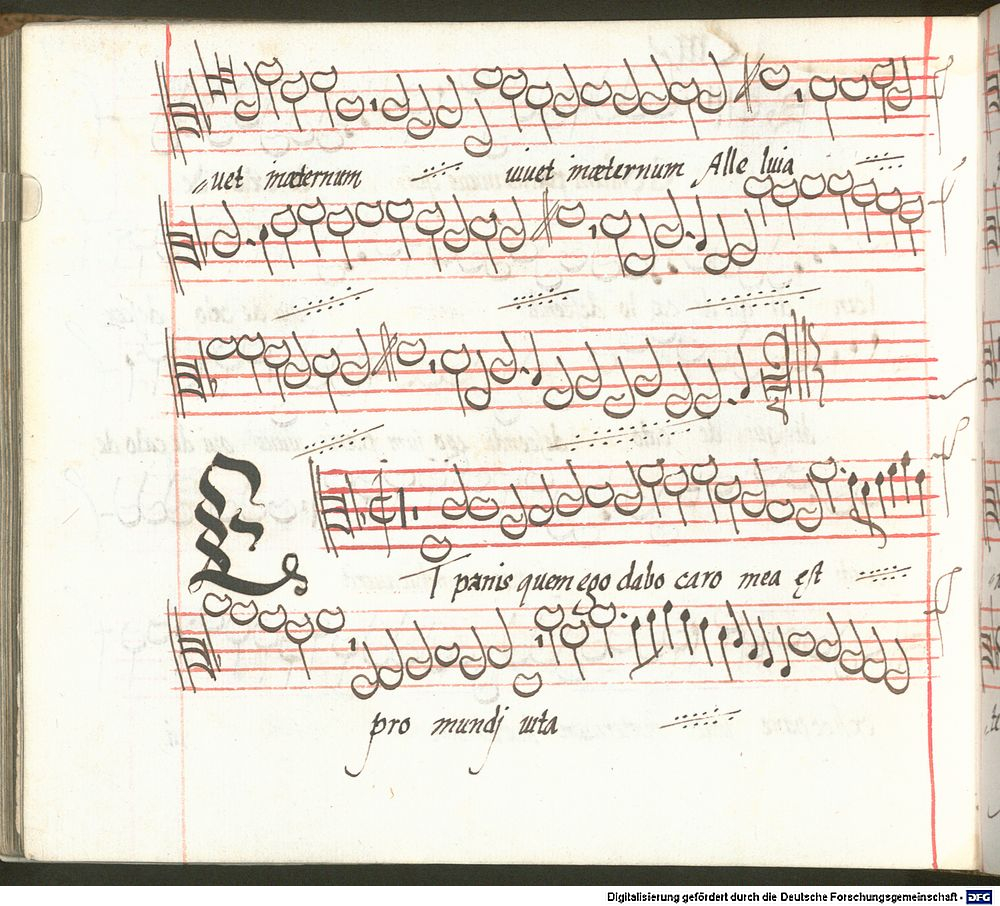 vet in æternum vivet in æternum Alle luia
Et panis quem ego dabo caro mea est
pro mundj vita
Digitalisierung gefördert durch die Deutsche Forschungsgemeinschaft - DFG